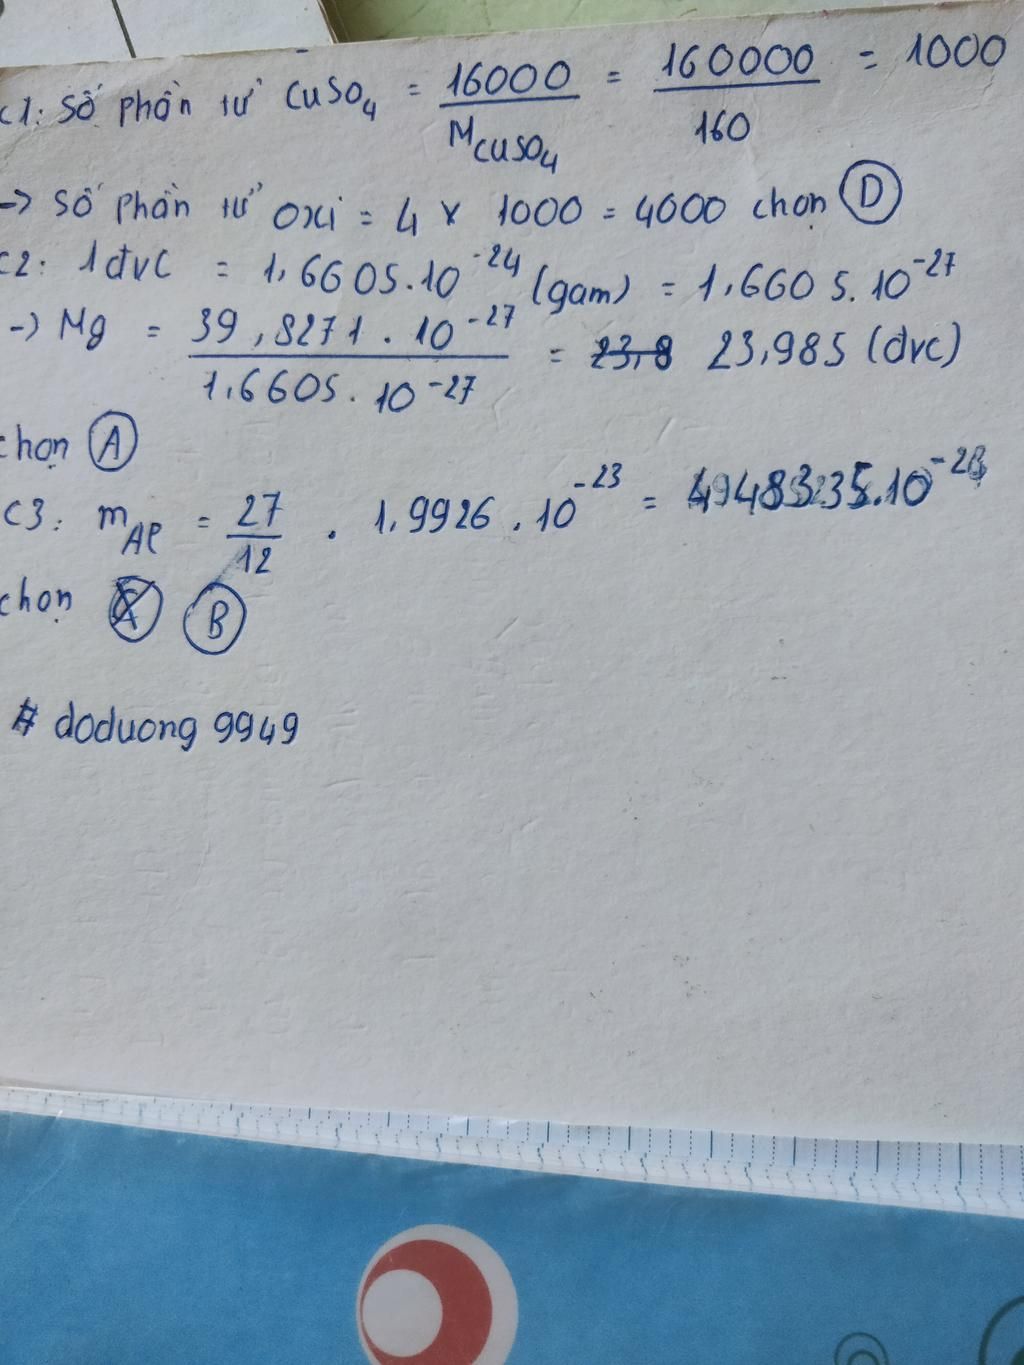 C1: Số phần tử CuSO4 = 16000 / MCuSO4 = 160000 / 160 = 1000
-> Số phần tử oxi = 4 x 1000 = 4000 chọn D
C2: 1đvc = 1,6605.10^-24 (gam) = 1,6605.10^-27
-> Mg = 39,8271.10^-27 / 1,6605.10^-27 = 23,8 23,985 (đvc)
chọn A
C3: mAl = 27/12 . 1,9926.10^-23 =
chọn B
# doduong 9949